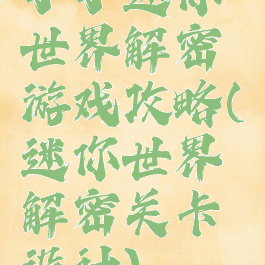 小小迷你
世界解密
游戏攻略(
迷你世界
解密关卡
游神)